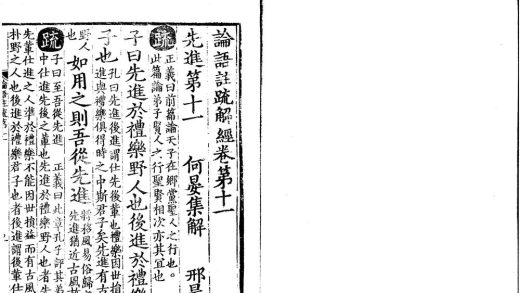 論語註疏解經卷第十一
先進第十一 何晏集解 邢
疏 正義曰前篇論夫子在鄉黨聖人之行也
此篇論弟子賢人之行聖賢相次亦其宜也
子曰先進於禮樂野人也後進於禮樂
子也 孔曰先進後進謂仕先後輩也禮樂因世損
進與禮樂俱得時之中斯君子矣先進有古
野人也 如用之則吾從先進 將移風易俗歸
先進猶近古風故
疏 子曰至吾從先進 正義曰此章孔子評其弟
中仕進先後之輩也先進於禮樂野人也者先
先輩仕進之人準於禮樂不能因世損益而有古風
朴野之人也後進於禮樂君子也者後進謂後輩仕